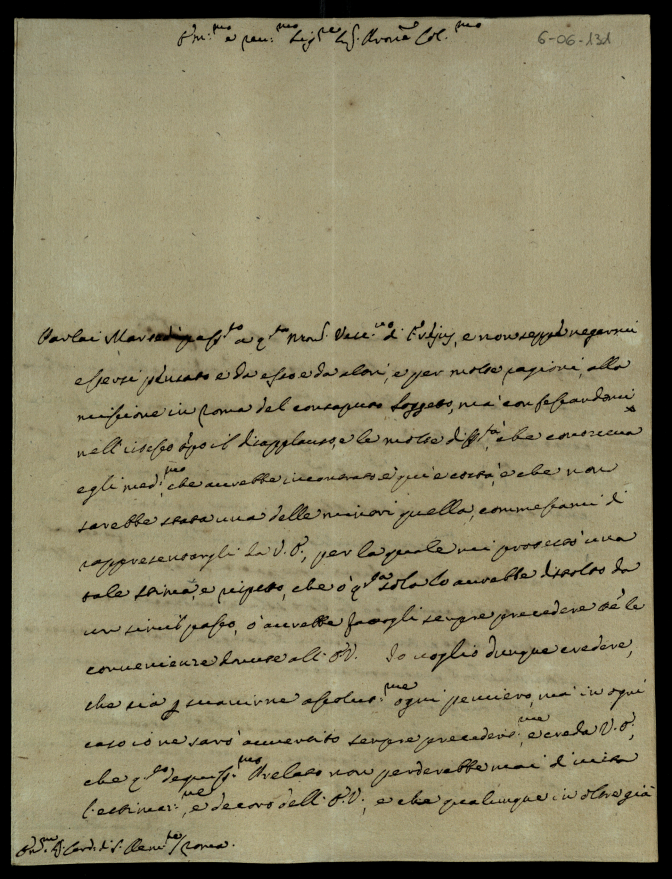 Em.mo e reu.mo Sig.re Sig. Prone Col.mo
6-06-131
Parlai Martedi pass.to a q.to Mons. Vesc.vo di Frejus, e non seppe negarmi
essersi pensato e da esso e da altri, e per molte ragioni, alla
missione in Roma del consaputo soggetto, mà confessandomi
nell'istesso tpo il disapplauso, e le molte diff.tà, che conosceua
egli med.mo, che aurebbe incontrato e qui e costà, e che non
sarebbe stata una delle minori quella, commessami di
rappresentargli da V. E., per la quale mi protestò una
tale stima, e rispetto, che ò q.ta sola lo aurebbe distolto da
un simil passo, ò aurebbe fattogli sempre precedere tte le
conuenienze douute all'E. V. Io uoglio dunque credere,
che sia p suanirne assolut.me ogni pensiero, mà in ogni
caso io ne sarò auuertito sempre precedent.me, e creda V. E.,
che q.to degniss.mo Prelato non perderebbe mai di uista
l'estimaz.ne, e decoro dell'E. V., e che qualunque in oltre già
Em.mo S. Card. di S. Clem.te / Roma.